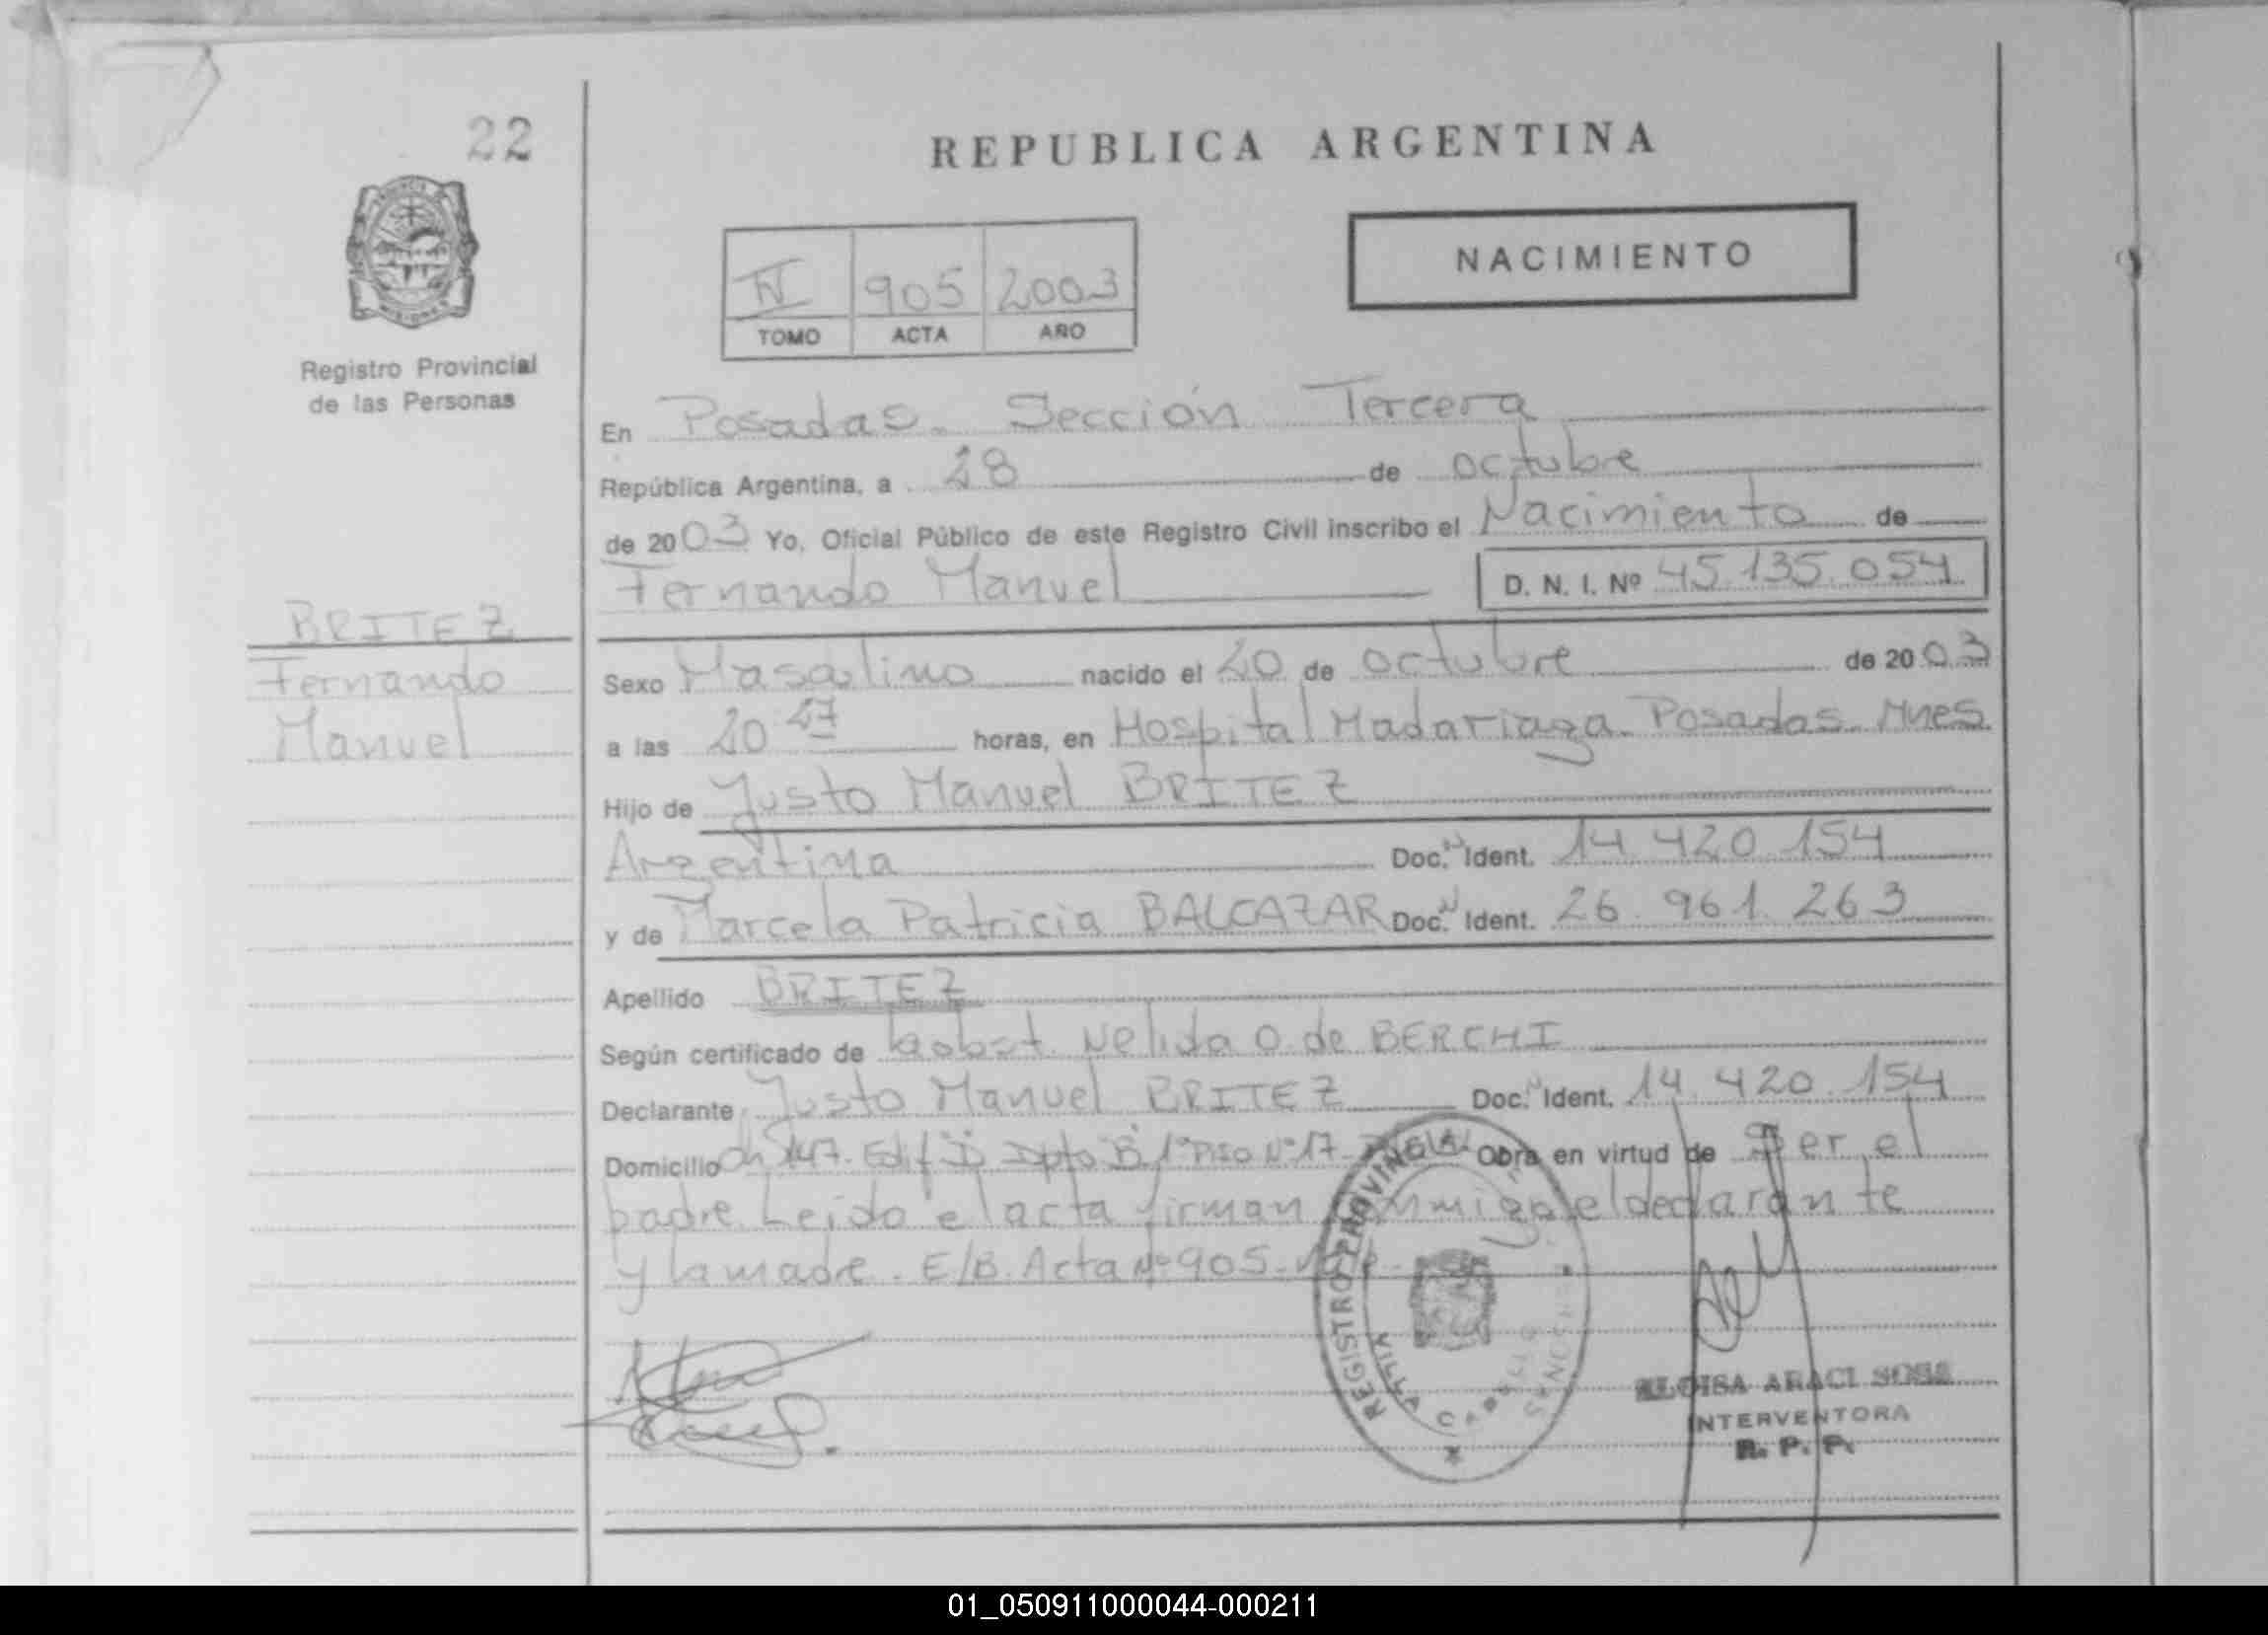 22
REPUBLICA ARGENTINA
NACIMIENTO
IV 905 2003
TOMO ACTA AÑO
Registro Provincial
de las Personas
En Posadas. Sección Tercera
República Argentina, a 28 de octubre
de 2003 Yo, Oficial Público de este Registro Civil inscribo el Nacimiento de
Fernando Manuel D. N. I. Nº 45.135.054
BRITEZ
Fernando
Manuel
Sexo Masculino nacido el 20 de octubre de 2003
a las 20 27 horas, en Hospital Madariaga. Posadas. Mnes
Hijo de Justo Manuel BRITEZ
Argentina Doc. N Ident. 14.420.154
y de Marcela Patricia BALCAZAR Doc. N Ident. 26.961.263
Apellido BRITEZ
Según certificado de la obst. Nelida O. de BERCHI
Declarante Justo Manuel BRITEZ Doc. N Ident. 14.420.154
Domicilio Ch 147. Edif D Dpto B 1º Piso Nº 17 Obra en virtud de Ser el
padre. Leido el acta firman conmigo el declarante
y la madre. E/B. Acta Nº 905.
REGISTRO PROVINCIAL
VILLA CABELLO
MISIONES
ELOISA ARACI SOSA
INTERVENTORA
R. P. P.
01_050911000044-000211